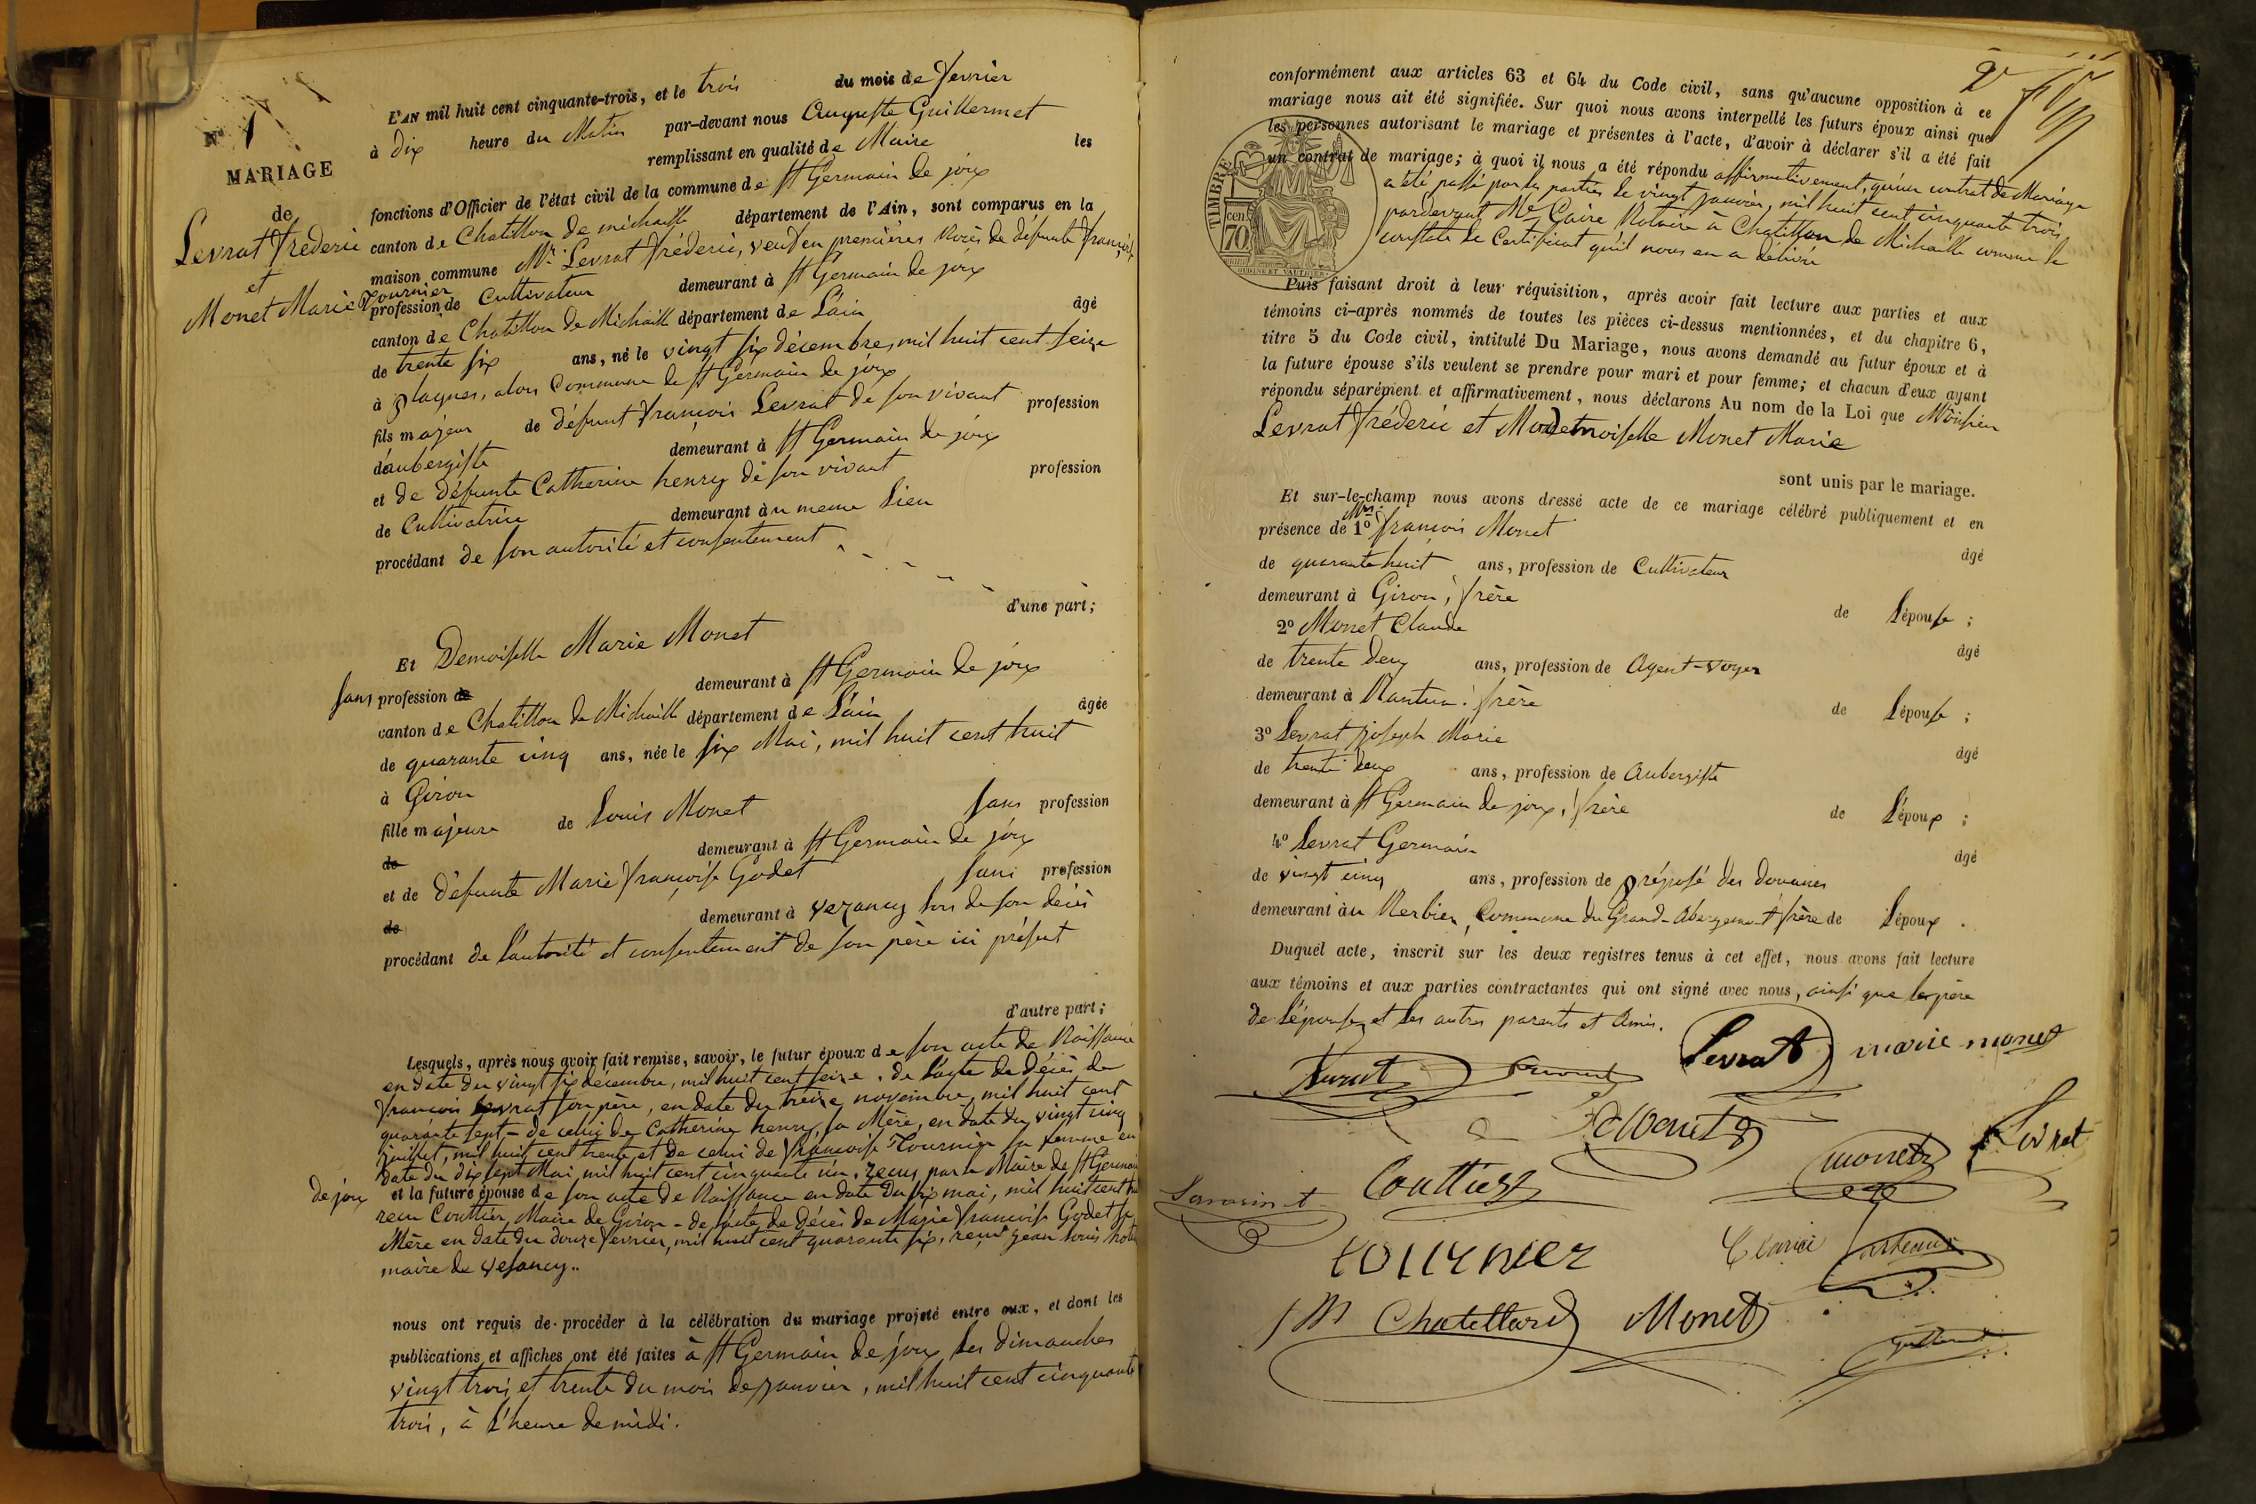 N° 1
MARIAGE
de
Levrat fréderic
et
Monet Marie
L'AN mil huit cent cinquante-trois, et le trois du mois de fevrier
à dix heure du Matin par-devant nous Auguste Guillermet
remplissant en qualité de Maire les
fonctions d'Officier de l'état civil de la commune de St Germain de joux
canton de Chatillon de michaille département de l'Ain, sont comparus en la
maison commune Mr Levrat fréderic, veuf en premières Noces de défunte françoise
fournier
profession de Cultivateur demeurant à St Germain de joux
canton de Chatillon de Michaille département de L'ain âgé
de trente six ans, né le vingt six décembre, mil huit cent seize
à plagnes, alors Commune de St Germain de joux
fils majeur de défunt françois Levrat de son vivant profession
d'aubergiste demeurant à St Germain de joux
et de défunte Catherine henry de son vivant profession
de Cultivatrice demeurant au meme Lieu
procédant de son autorité et consentement
d'une part;
Et Demoiselle Marie Monet
sans profession de demeurant à St Germain de joux
canton de Chatillon de Michaille département de L'ain âgée
de quarante cinq ans, née le six Mai, mil huit cent huit
à Giron
fille majeure de Louis Monet sans profession
de demeurant à St Germain de joux
et de défunte Marie françoise Godet sans profession
de demeurant à vezancy lors de son décès
procédant de L'autorité et consentement de son père ici présent
d'autre part;
Lesquels, après nous avoir fait remise, savoir, le futur époux de son acte de Naissance
en date du vingt six décembre, mil huit cent seize, de L'acte de Décès de
françois Levrat son père, en date du treize novembre, mil huit cent
quarante sept - de celui de Catherine henry, sa Mère, en date du vingt cinq
juillet, mil huit cent trente et de celui de françoise Tournier sa femme en
date du dix sept Mai mil huit cent cinquante un, reçus par le Maire de St Germain
de joux
et la future épouse de son acte de Naissance en date du six mai, mil huit cent huit
reçu Couttier, Maire de Giron - de L'acte de Décès de Marie françoise Godet sa
Mère en date du douze fevrier, mil huit cent quarante six, reçu jean Louis
maire de Vesancy..
nous ont requis de procéder à la célébration du mariage projeté entre eux, et dont les
publications et affiches ont été faites à St Germain de joux les dimanches
vingt trois et trente du mois de janvier, mil huit cent cinquante
trois, à L'heure de midi.
conformément aux articles 63 et 64 du Code civil, sans qu'aucune opposition à ce
mariage nous ait été signifiée. Sur quoi nous avons interpellé les futurs époux ainsi que
les personnes autorisant le mariage et présentes à l'acte, d'avoir à déclarer s'il a été fait
un contrat de mariage; à quoi il nous a été répondu affirmativement, qu'un contrat de Mariage
a été passé par les parties le vingt janvier, mil huit cent cinquante trois,
pardevant Me Caire Notaire à Chatillon de Michaille comme le
constate le Certificat qu'il nous en a délivré
TIMBRE
cen
70
OUDINE ET VAUTHIER
Puis faisant droit à leur réquisition, après avoir fait lecture aux parties et aux
témoins ci-après nommés de toutes les pièces ci-dessus mentionnées, et du chapitre 6,
titre 5 du Code civil, intitulé Du Mariage, nous avons demandé au futur époux et à
la future épouse s'ils veulent se prendre pour mari et pour femme; et chacun d'eux ayant
répondu séparément et affirmativement, nous déclarons Au nom de la Loi que Monsieur
Levrat fréderic et Mademoiselle Monet Marie
sont unis par le mariage.
Et sur-le-champ nous avons dressé acte de ce mariage célébré publiquement et en
présence de 1° Mrs françois Monet
âgé
de quarante huit ans, profession de Cultivateur
demeurant à Giron, frère de L'épouse;
2° Monet Claude
âgé
de trente deux ans, profession de Agent-voyer
demeurant à Nantua, frère de L'épouse;
3° Levrat joseph Marie
âgé
de trente deux ans, profession de Aubergiste
demeurant à St Germain de joux, frère de L'époux;
4° Levrat Germain
âgé
de vingt cinq ans, profession de préposé des douanes
demeurant au Nerbier, Commune du Grand-Abergement frère de L'époux.
Duquel acte, inscrit sur les deux registres tenus à cet effet, nous avons fait lecture
aux témoins et aux parties contractantes qui ont signé avec nous, ainsi que le père
de L'épouse, et les autres parents et Amis.
Levrat marie monet
monet Levrat
Couttier
TOURNIER
Chatellard Monet